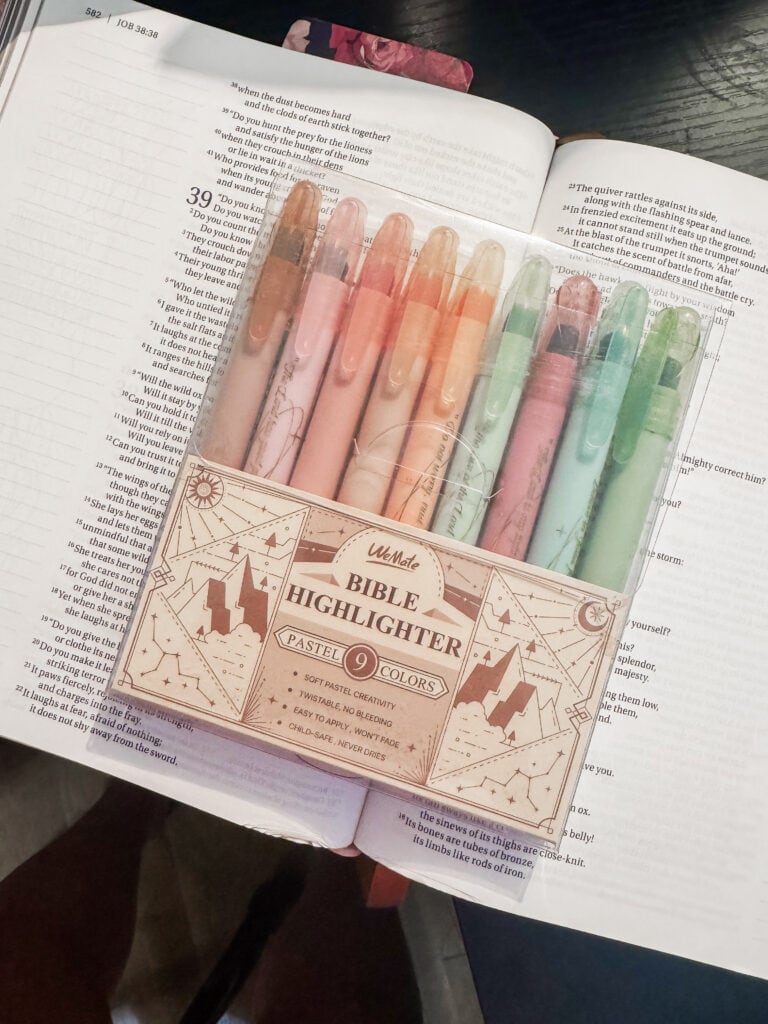 582 | JOB 38:38
38 when the dust becomes hard
and the clods of earth stick together?
39 “Do you hunt the prey for the lioness
and satisfy the hunger of the lions
40 when they crouch in their dens
or lie in wait in a thicket?
41 Who provides food for the raven
when its young cry God
and wander about of f
39 “Do you kno
Do you watc
2 Do you count the
Do you know
3 They crouch down
their labor pa
4 Their young thri
they leave and
5 “Who let the wild
Who untied it
6 I gave it the waste
the salt flats as
7 It laughs at the co
it does not hea
8 It ranges the hill
and searches
9 “Will the wild ox
Will it stay by
10 Can you hold it
Will it till the
11 Will you rely on i
Will you leave
12 Can you trust it
and bring it to
13 “The wings of the
though they ca
with the wings
14 She lays her eggs
and lets them
15 unmindful that a
that some wild
16 She treats her you
she cares not th
17 for God did not en
or give her a sh
18 Yet when she spre
she laughs at h
19 “Do you give the
or clothe its ne
20 Do you make it le
striking terror
21 It paws fiercely, rejoicing in its strength,
and charges into the fray.
22 It laughs at fear, afraid of nothing;
it does not shy away from the sword.
23 The quiver rattles against its side,
along with the flashing spear and lance.
24 In frenzied excitement it eats up the ground;
it cannot stand still when the trumpet sounds
25 At the blast of the trumpet it snorts, ‘Aha!’
It catches the scent of battle from afar,
of commanders and the battle cry.
“Does the hawk flight by your wisdom
Almighty correct him?
m!”
you?
he storm:
yourself?
his?
splendor,
majesty.
ng them low.
ble them,
nd.
ve you.
n ox.
s belly!
the sinews of its thighs are close-knit.
18 Its bones are tubes of bronze,
its limbs like rods of iron.
WeMate
BIBLE
HIGHLIGHTER
PASTEL 9 COLORS
• SOFT PASTEL CREATIVITY
• TWISTABLE, NO BLEEDING
• EASY TO APPLY , WON'T FADE
• CHILD-SAFE , NEVER DRIES